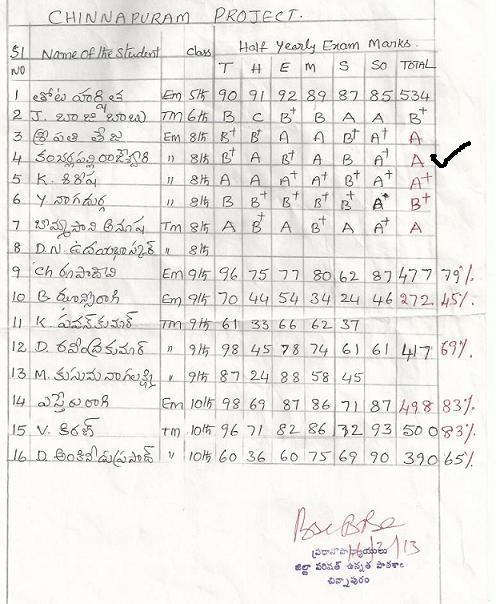 CHINNAPURAM PROJECT.
Sl NO Name of the Student class Half Yearly Exam Marks.
T H E M S So TOTAL
1 తోట హర్షిత Em 5th 90 91 92 89 87 85 534
2 J. బాజి బాబు TM 6th B C B+ B A A B+
3 శ్రీపతి తేజ Em 8th B+ B+ A A B+ A+ A
4 రాజేశ్వరి " 8th B+ A B+ A B A+ A
5 K. శిరీష " 8th A A A+ A B+ A+ A+
6 Y నాగదుర్గ " 8th B B B+ B+ B+ A+ B+
7 అనూష Tm 8th A B+ A B+ A A+ A
8 D.N. ఉదయభాస్కర్ " 8th
9 Ch రూపాదేవి Em 9th 96 75 77 80 62 87 477 79%
10 B. ఝాన్సీరాణి Em 9th 70 44 54 34 24 46 272 45%
11 K. పవన్ కుమార్ TM 9th 61 33 66 62 37
12 D. రవీంద్రకుమార్ " 9th 98 45 78 74 61 61 417 69%
13 M. కుసుమ నాగలక్ష్మి " 9th 87 24 88 58 45
14 ఎస్తేరు రాణి Em 10th 98 69 87 86 71 87 498 83%
15 V. కిరణ్ Tm 10th 96 71 82 86 72 93 500 83%
16 D. అంకినీడుప్రసాద్ " 10th 60 36 60 75 69 90 390 65%
ప్రధానోపాధ్యాయులు
జిల్లా పరిషత్ ఉన్నత పాఠశాల
చిన్నాపురం